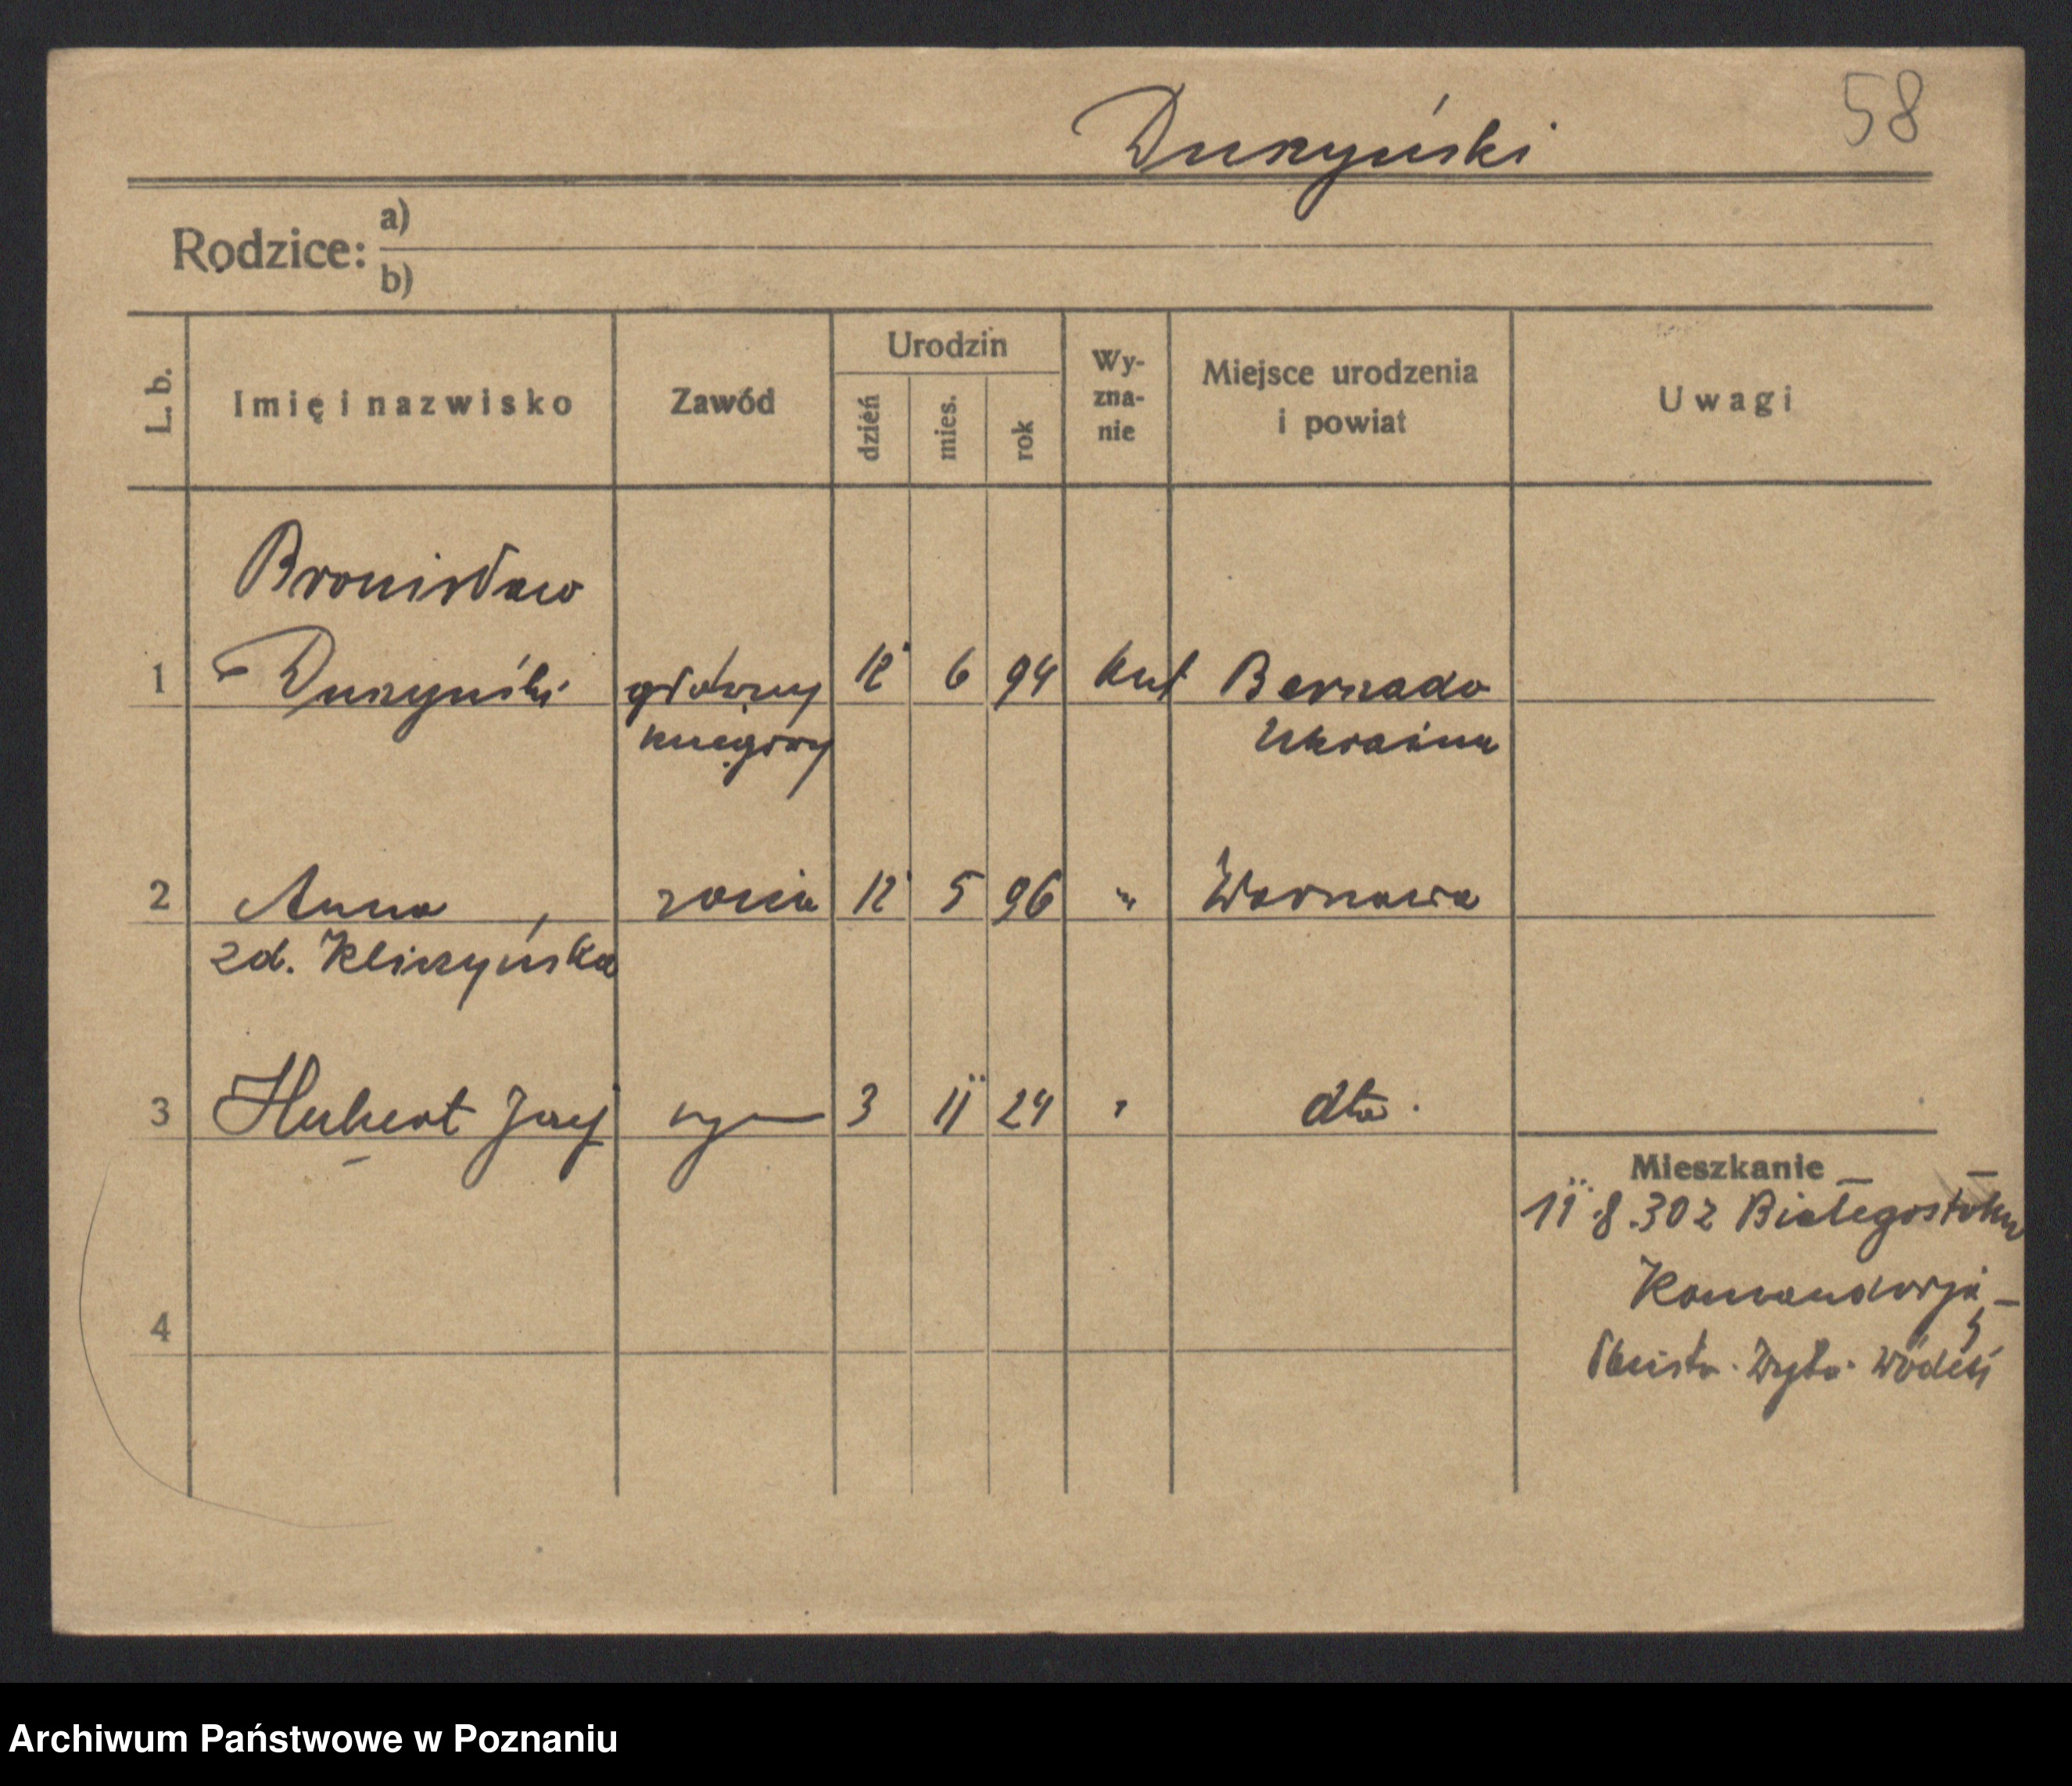 58
Duszyński
Rodzice: a)
b)
L. b. Imię i nazwisko Zawód Urodzin dzień mies. rok Wy-zna-nie Miejsce urodzenia i powiat Uwagi
Bronisław
1 Duszyński główny 12 6 94 kat
księgowy Ukraina
2 Anna żona 12 5 96 " Warszawa
zd.
3 Hubert syn 3 11 24 " dto.
Mieszkanie
11.8.30 z Białegostoku
Komandorja
4
Archiwum Państwowe w Poznaniu